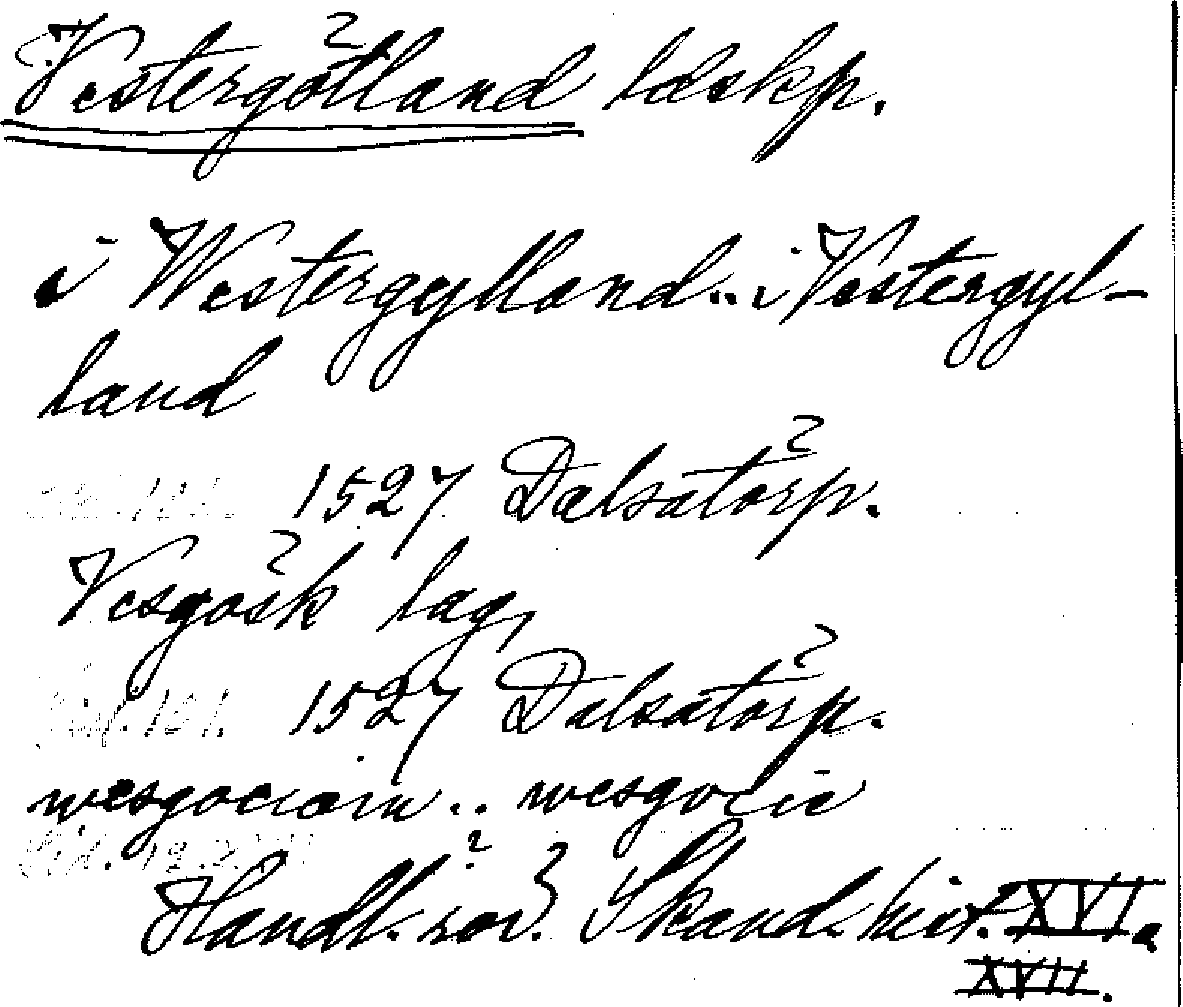 Västergötland ldskp.
i Westergylland.. i Vestergyl-
land
1527 Dalsatorp.
Vesgösk lag,
1527 Dalsatorp.
wesgociam.. wesgocie
Handl. rör. Skand. hist. XVI a
XVII.